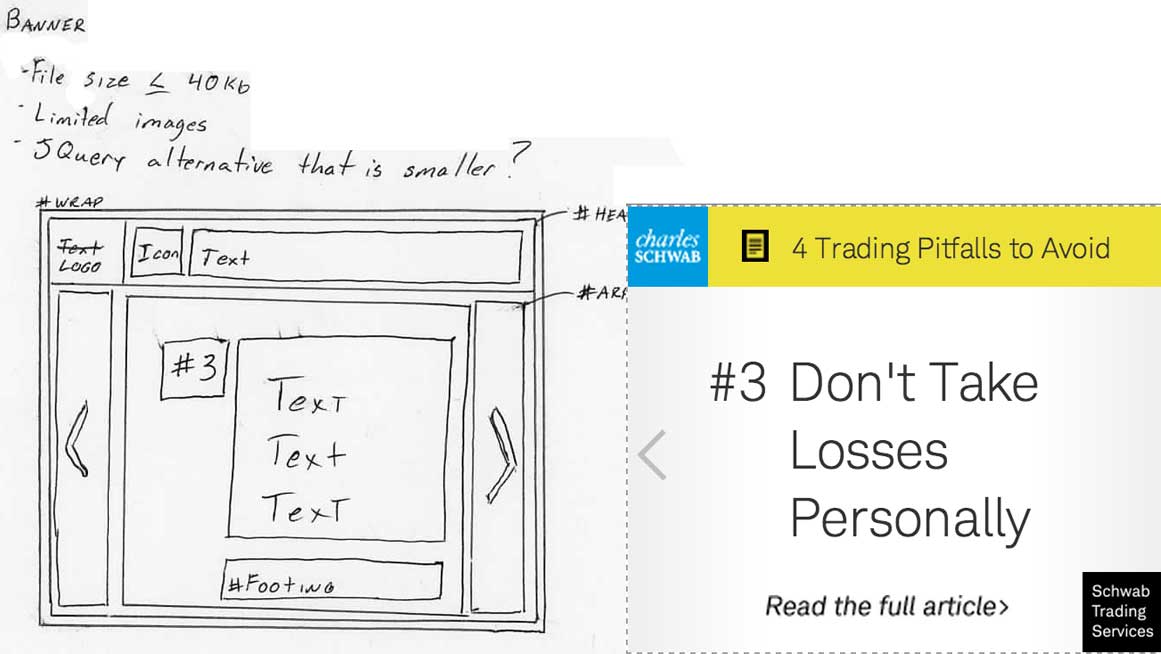 BANNER
- File size ≤ 40Kb
- Limited images
- JQuery alternative that is smaller?
#WRAP
#HEA
Text
LOGO
Icon
Text
#ARR
#3
Text
Text
Text
#FOOTING
charles
SCHWAB
4 Trading Pitfalls to Avoid
#3 Don't Take
Losses
Personally
Read the full article>
Schwab
Trading
Services